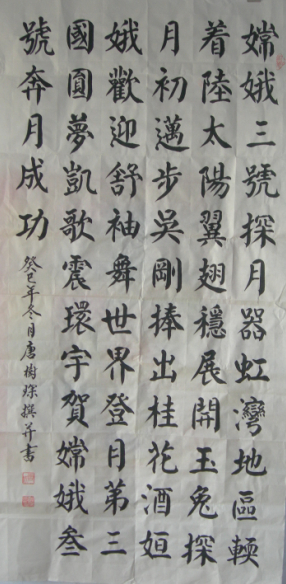 嫦娥三號探月器虹灣地區輭
着陸太陽翼翅穩展開玉兔探
月初邁步吳剛捧出桂花酒姮
娥歡迎舒袖舞世界登月第三
國圓夢凱歌震環宇賀嫦娥叁
號奔月成功
癸巳年冬月唐樹琛撰并書